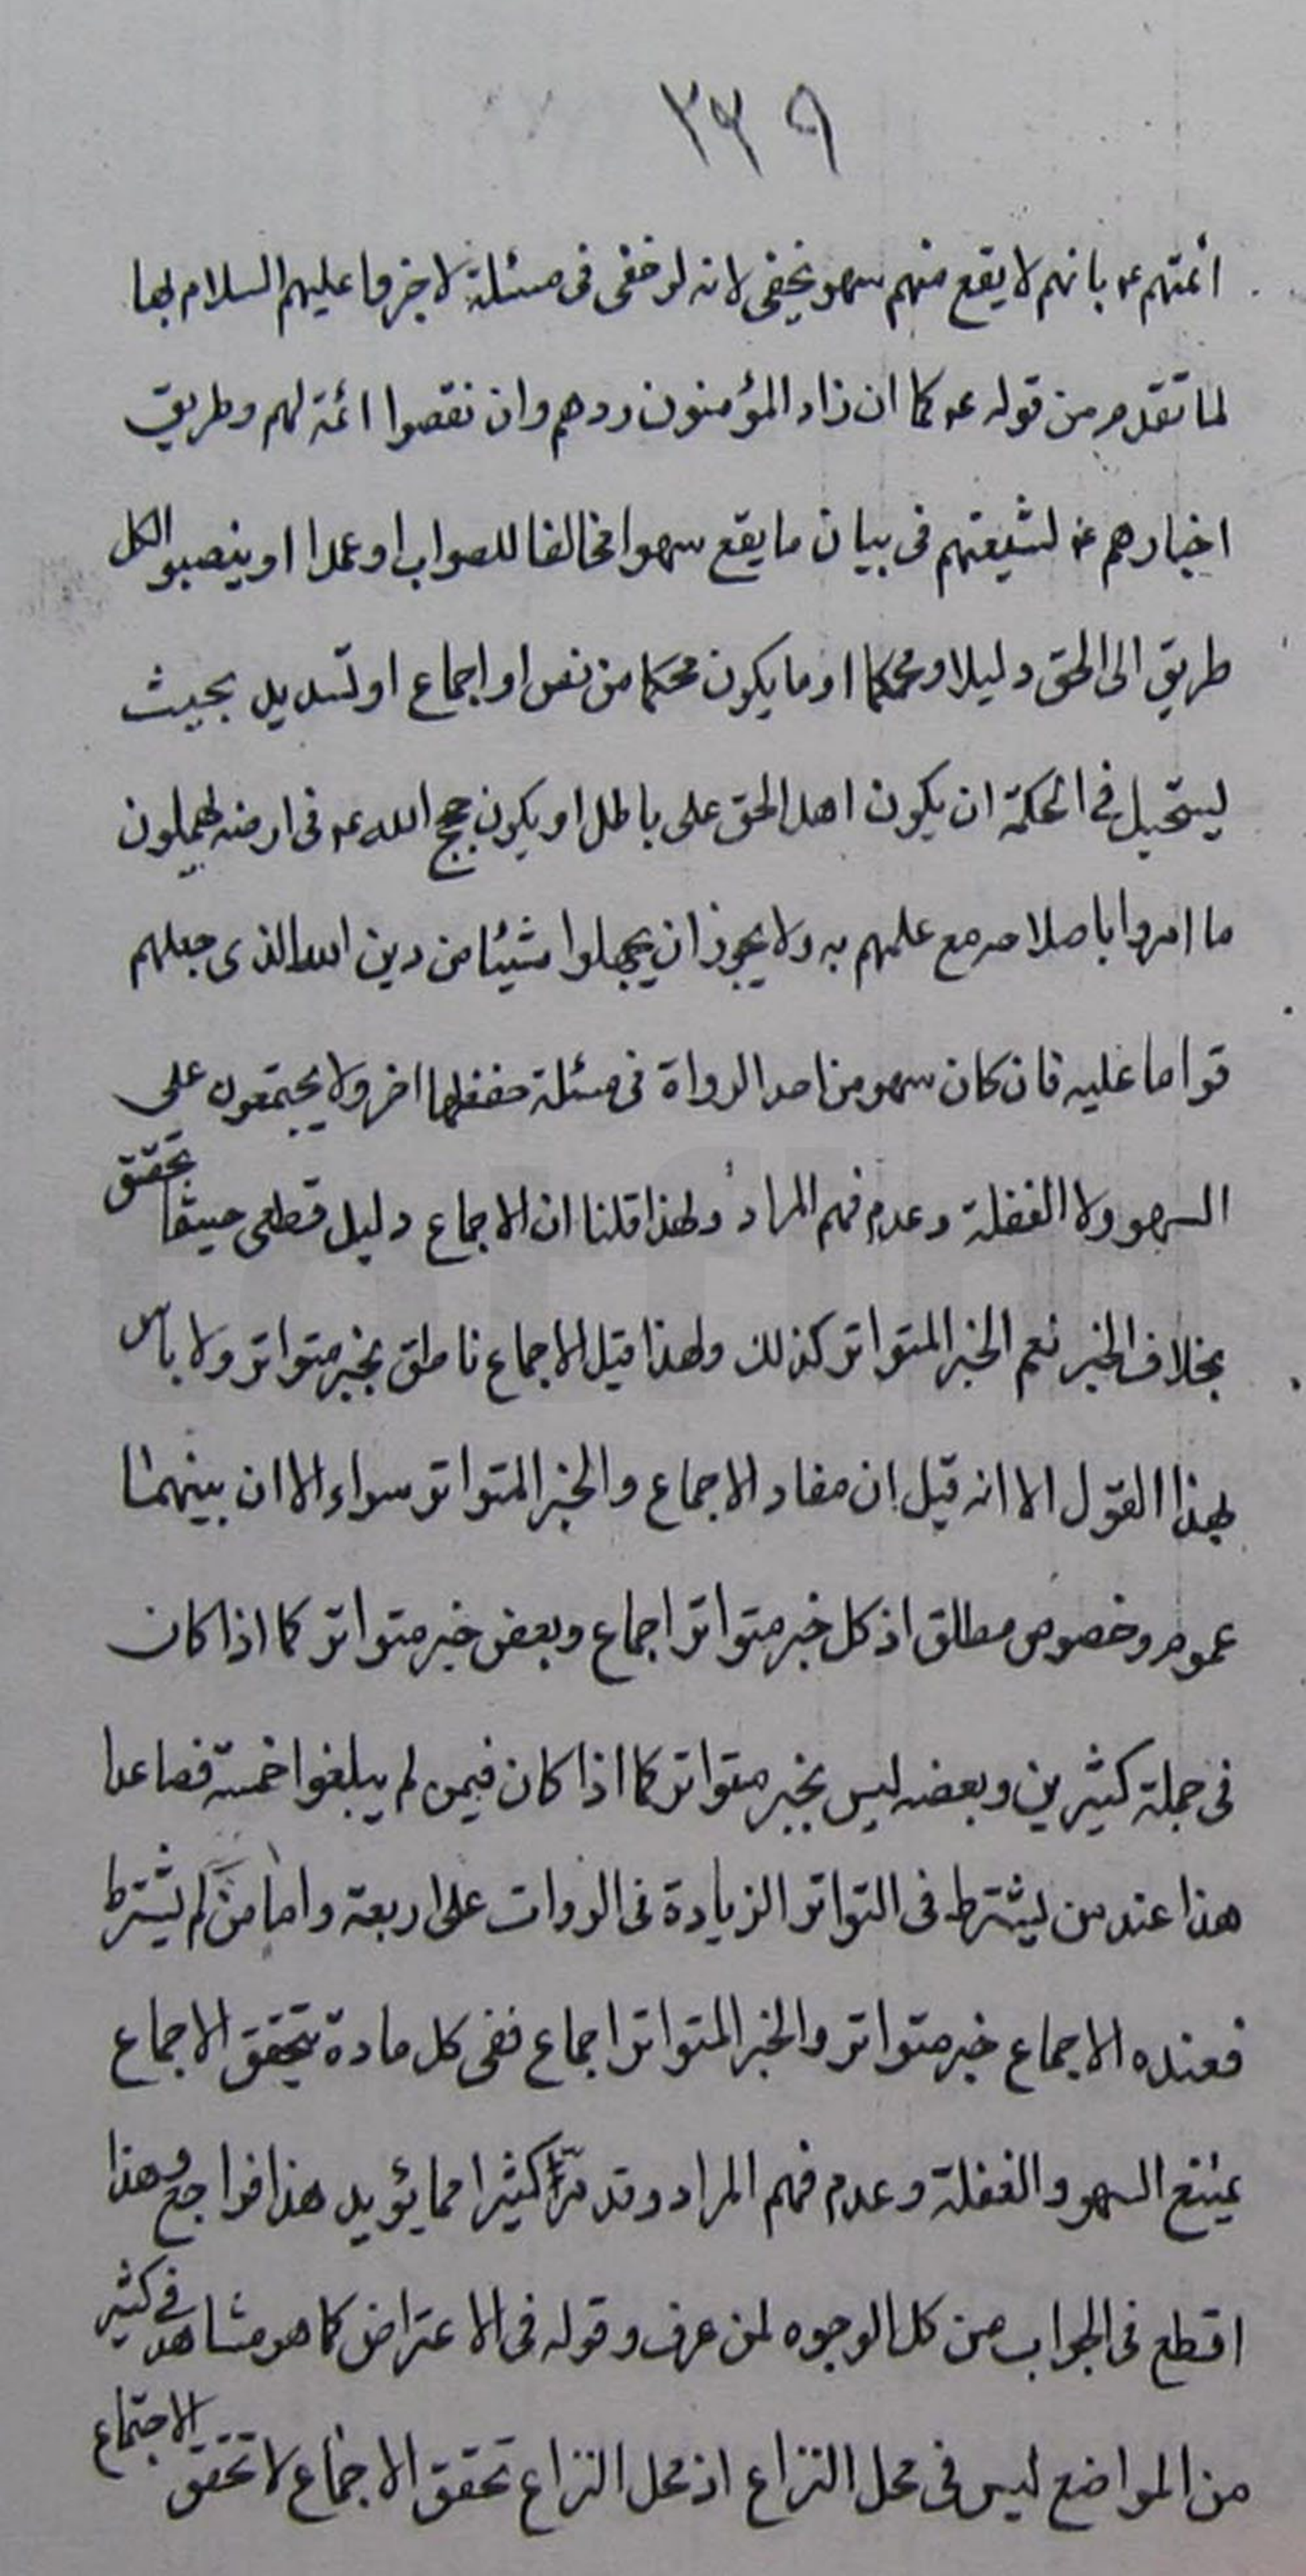 ٣٣٩
ائمتهم ع بانهم لا يقع منهم سهو يخفى لانه لو خفى فى مسئلة لاخبروا عليهم السلام بها
لما تقدم من قوله ع كما ان زاد المؤمنون ردهم وان نقصوا اتمه لهم وطريق
اخبارهم ع لشيعتهم فى بيان ما يقع سهوا مخالفا للصواب او عمدا او ينصبوا لكل
طريق الى الحق دليلا ومحكما او ما يكون محكما من نص او اجماع او تسديد بحيث
يستحيل فى الحكمة ان يكون اهل الحق على باطل او يكون حجج الله ع فى ارضه يهملون
ما امروا باصلاحه مع علمهم به ولا يجوز ان يجهلوا شيئا من دين الله الذى جعلهم
قواما عليه فان كان سهو من احد الرواة فى مسئلة حفظها اخر ولا يجتمعون على
السهو ولا الغفلة وعدم فهم المراد ولهذا قلنا ان الاجماع دليل قطعى حيثما تحقق
بخلاف الخبر نعم الخبر المتواتر كذلك ولهذا قيل الاجماع ناطق بخبر متواتر ولا باس
بهذا القول الا انه قيل ان مفاد الاجماع والخبر المتواتر سواء الا ان بينهما
عموم وخصوص مطلق اذ كل خبر متواتر اجماع وبعض خبر متواتر كما اذا كان
فى جملة كثيرين وبعضه ليس بخبر متواتر كما اذا كان فيمن لم يبلغوا خمسة فصاعدا
هذا عند من يشترط فى التواتر الزيادة فى الروات على اربعة واما من لم يشترط
فعنده الاجماع خبر متواتر والخبر المتواتر اجماع ففى كل مادة يتحقق الاجماع
يمتنع السهو والغفلة وعدم فهم المراد وقد مر كثيرا مما يؤيد هذا فراجع وهذا
اقطع فى الجواب من كل الوجوه لمن عرف وقوله فى الاعتراض كما هو مشاهد فى كثير
من المواضع ليس فى محل النزاع اذ محل النزاع تحقق الاجماع لا تحقق الاجتماع